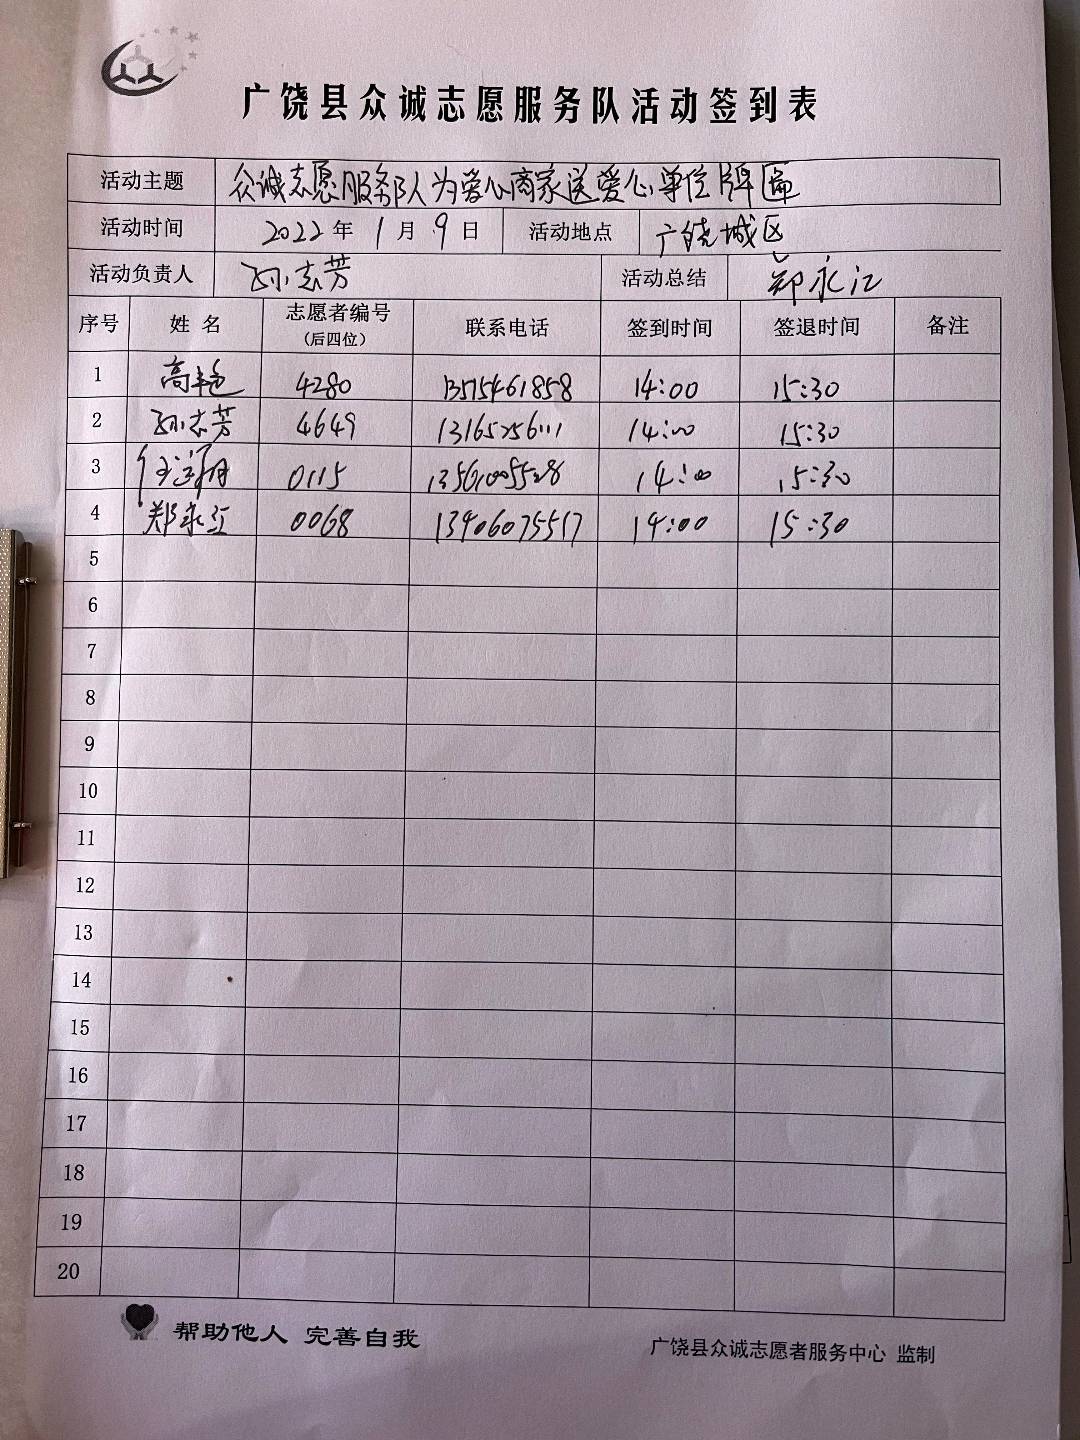 广饶县众诚志愿服务队活动签到表
活动主题 众诚志愿服务队为爱心商家送爱心单位牌匾
活动时间 2022年1月9日 活动地点 广饶城区
活动负责人 孙志芳 活动总结 郑永江
序号 姓名 志愿者编号（后四位） 联系电话 签到时间 签退时间 备注
1 高艳 4280 13515461858 14:00 15:30
2 孙志芳 4649 13165256111 14:00 15:30
3 0115 13561005528 14:00 15:30
4 郑永江 0068 13406075517 14:00 15:30
5
6
7
8
9
10
11
12
13
14
15
16
17
18
19
20
帮助他人 完善自我
广饶县众诚志愿者服务中心 监制